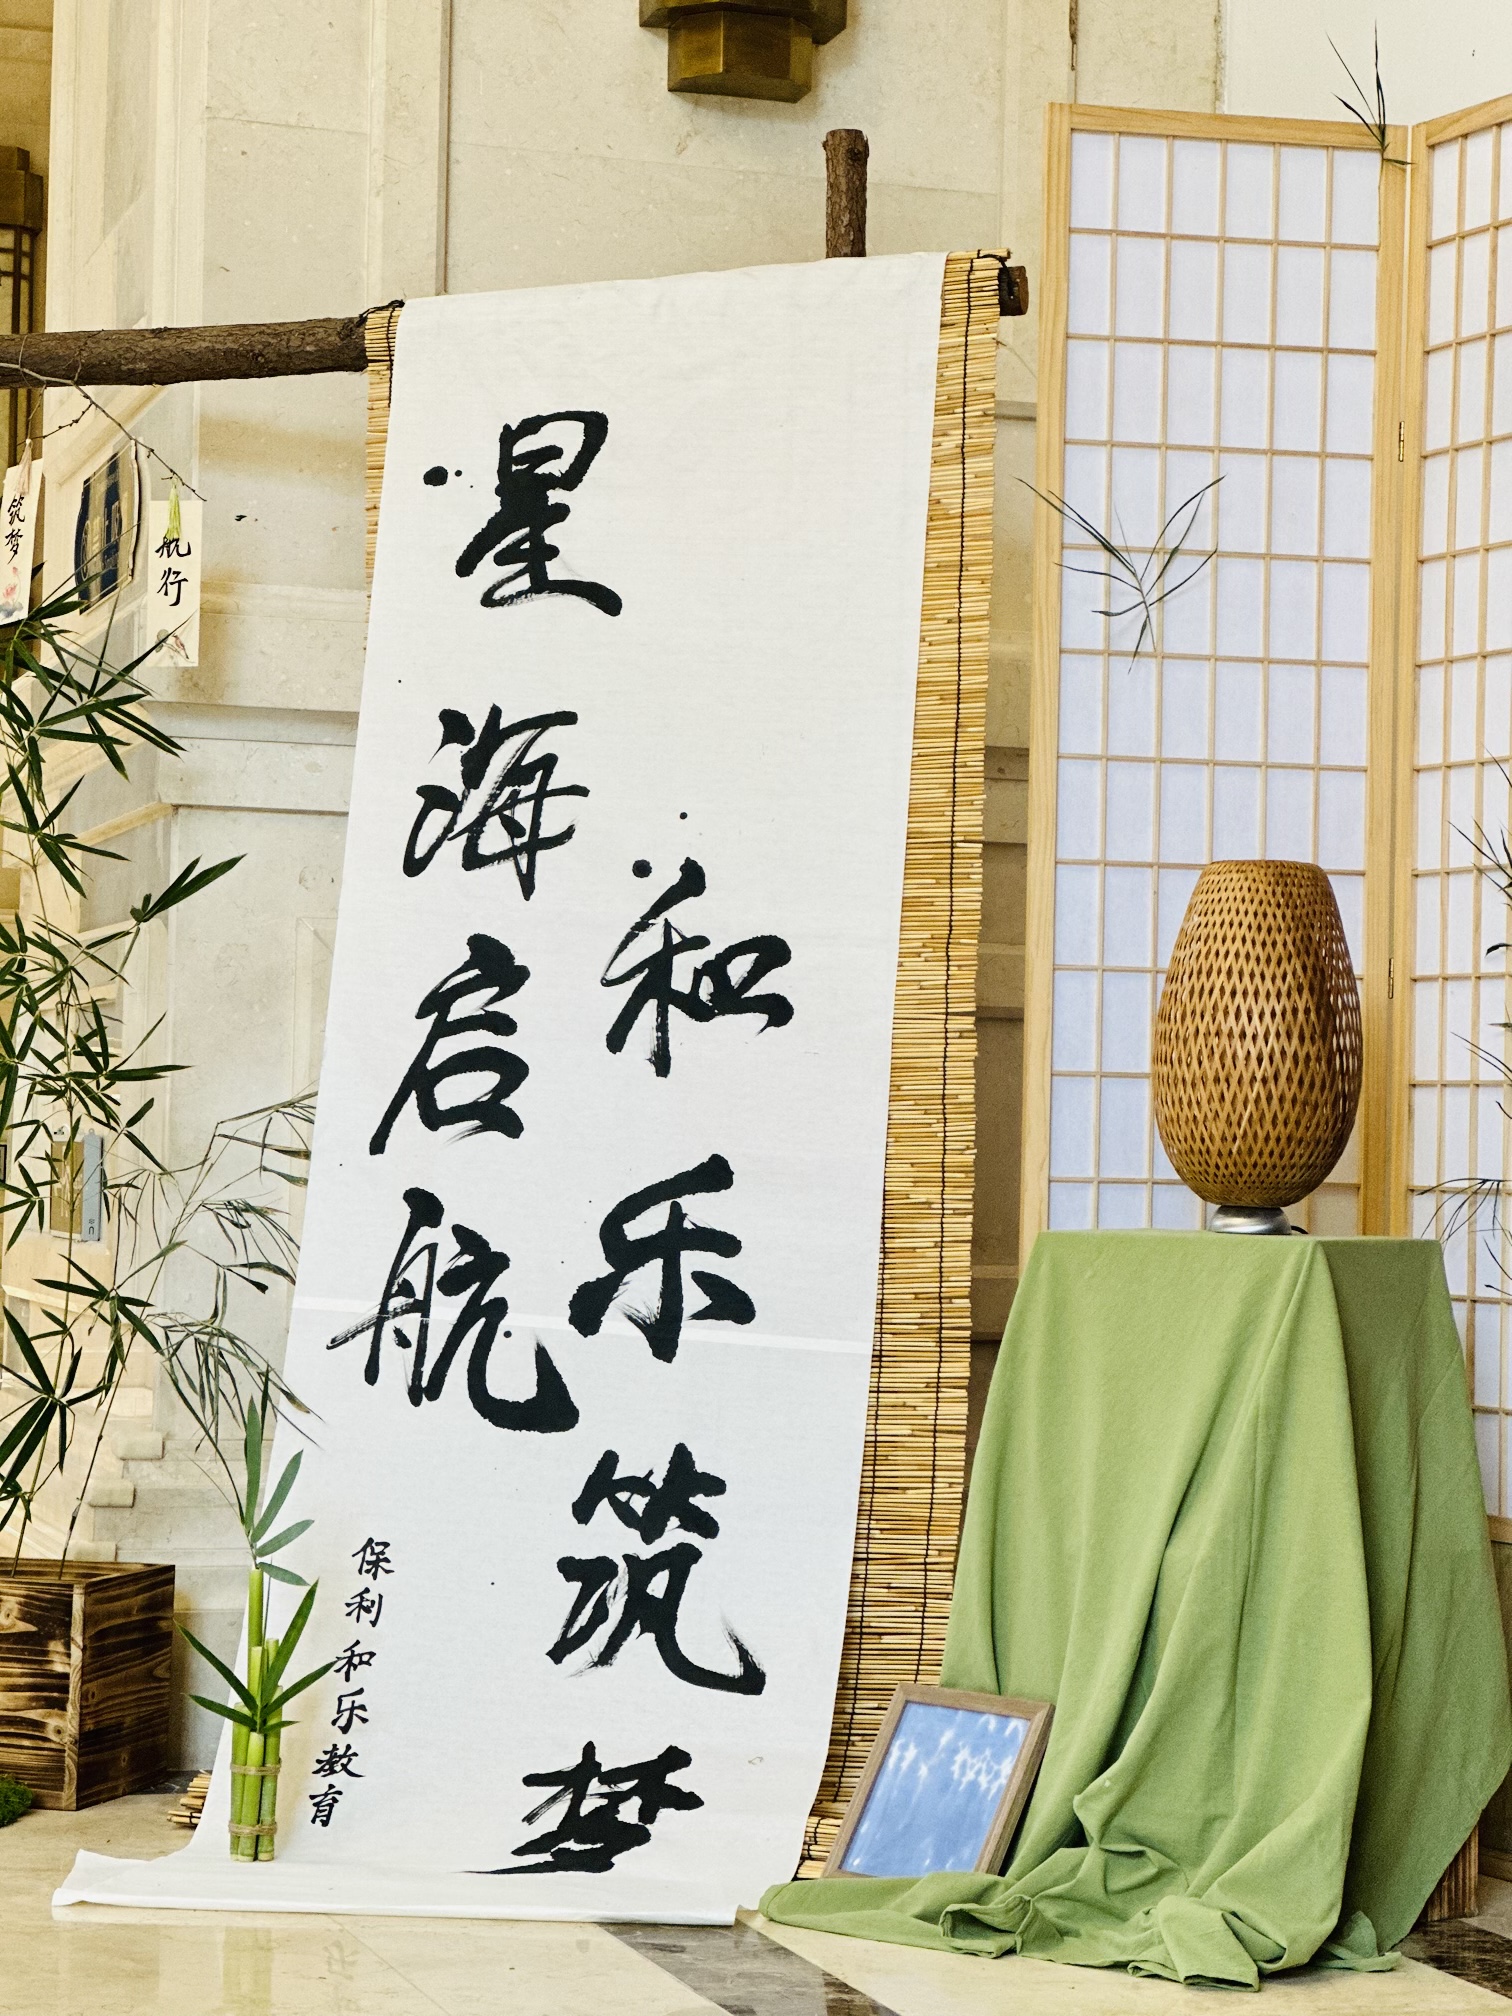 和乐筑梦
星海启航
保利和乐教育
航行
筑梦